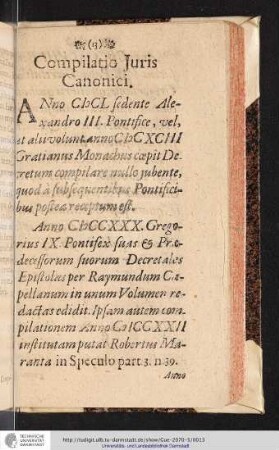 (9)
Compilatio Juris
Canonici.
ANno CIƆCL sedente Ale-
xandro III. Pontifice, vel,
et alii volunt anno CIƆCXCIII
Gratianus Monachus cœpit De-
cretum compilare nullo jubente,
quod à subsequentibus Pontifici-
bus postea receptum est.
Anno CIƆCCXXX. Grego-
rius IX Pontifex suas & Præ-
decessorum suorum Decretales
Epistolas per Raymundum Ca-
pellanum in unum Volumen re-
dactas edidit. Ipsam autem com-
pilationem Anno CIƆCCXXII
institutam putat Robertus Ma-
ranta in Speculo part. 3. n. 39.
Anno
http://tudigit.ulb.tu-darmstadt.de/show/Gue-2978-5/0013
Universitäts- und Landesbibliothek Darmstadt